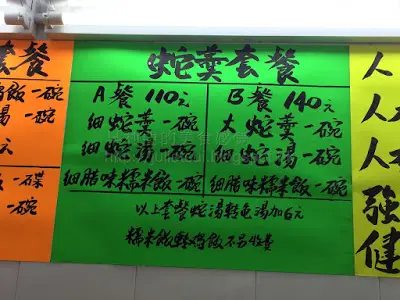 套餐
鸡飯一碗
湯一碗
元
飯一碟
一碗
蛇羹套餐
A餐 110元
細蛇羹一碗
細蛇湯一碗
細腊味糯米飯一碗
B餐 140元
大蛇羹一碗
蛇湯一碗
細腊味糯米飯一碗
以上套餐蛇湯轉龟湯加6元
糯米飯轉鸡飯不另收費
人
人
人
強
健